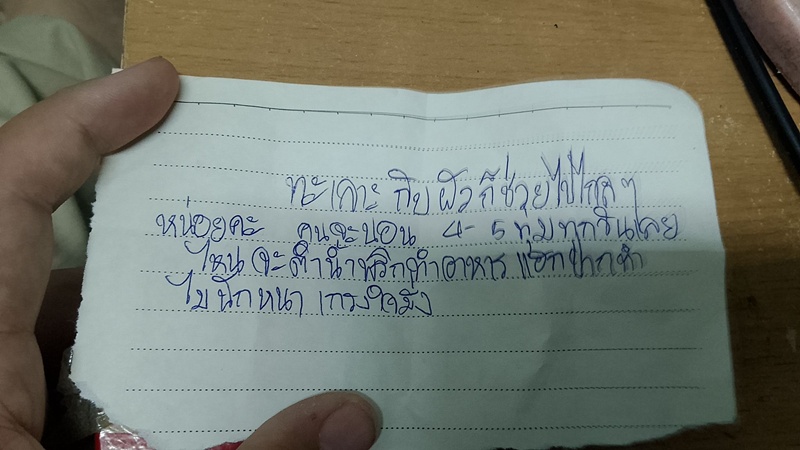 ทะเลาะ กับ ผัว ก็ช่วยไปไกล ๆ
หน่อยคะ คนจะนอน 4-5 ทุ่ม ทุกวันเลย
ไหน จะตำน้ำพริกทำอาหาร
ไม่นึกหนา เกรงใจมั่ง